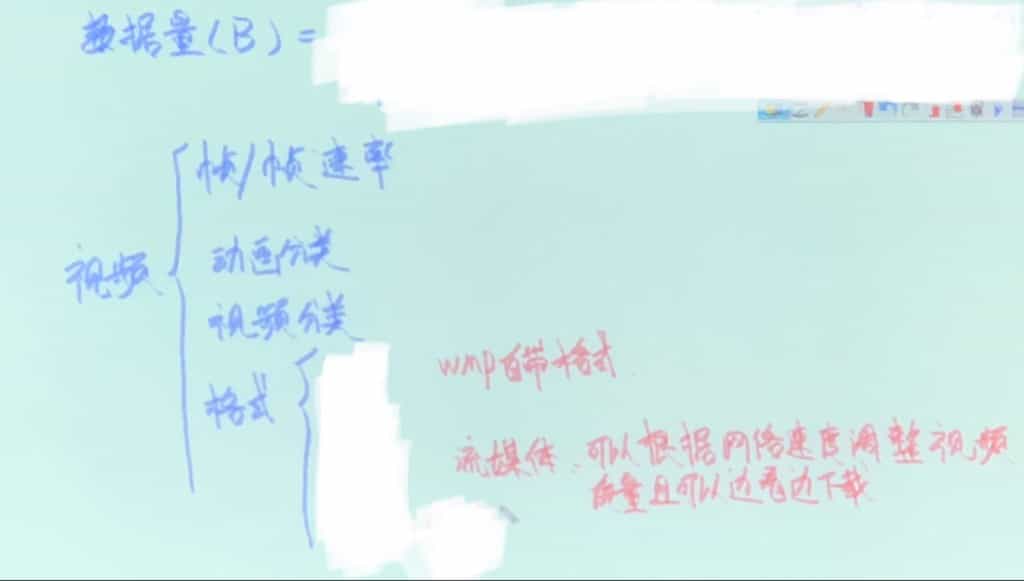 数据量(B)=
帧/帧速率
动画分类
视频
视频分类
格式
wmp自带格式.
流媒体、可以根据网络速度调整视频
质量且可以边看边下载